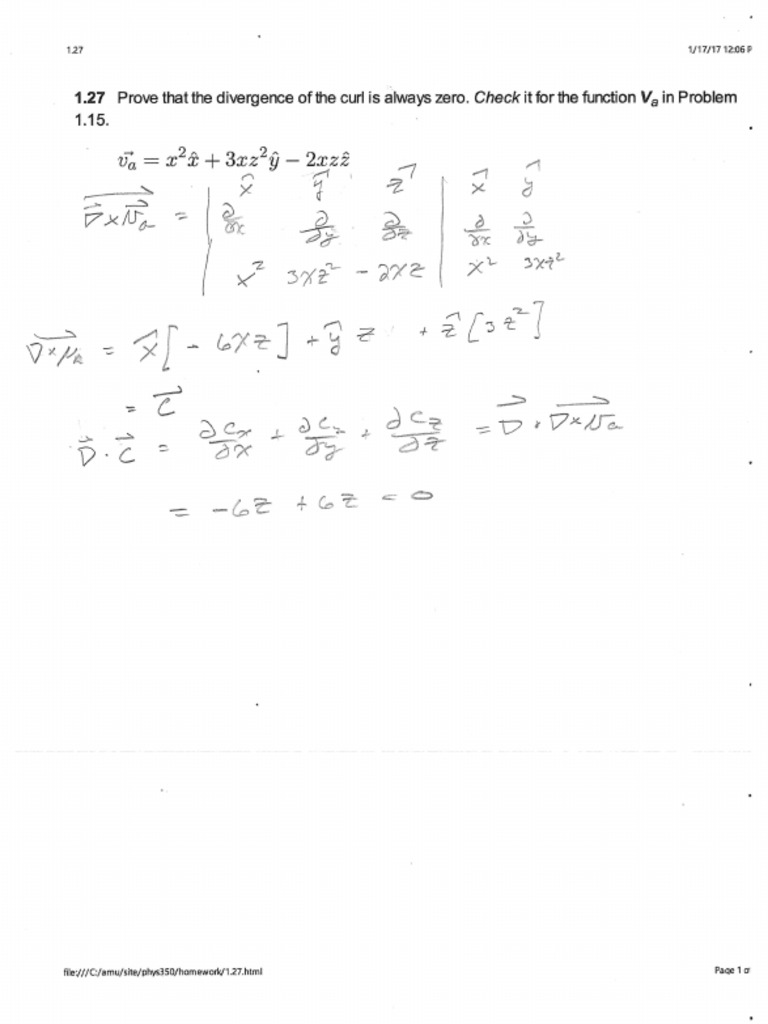 1.27 1/17/17 12:06 P
1.27 Prove that the divergence of the curl is always zero. Check it for the function Va in Problem
1.15.
v⃗a = x²x̂ + 3xz²ŷ − 2xzẑ
x̂ ŷ ẑ | x̂ ŷ
∇⃗×v⃗a = | ∂/∂x ∂/∂y ∂/∂z | ∂/∂x ∂/∂y
x² 3xz² − 2xz | x² 3xz²
∇×va = x̂[− 6xz] + ŷ z + ẑ[3z²]
= C⃗
∇⃗ · C⃗ = ∂Cx/∂x + ∂Cy/∂y + ∂Cz/∂z = ∇⃗ · ∇×va
= −6z + 6z = 0
file:///C:/amu/site/phys350/homework/1.27.html Page 1 o